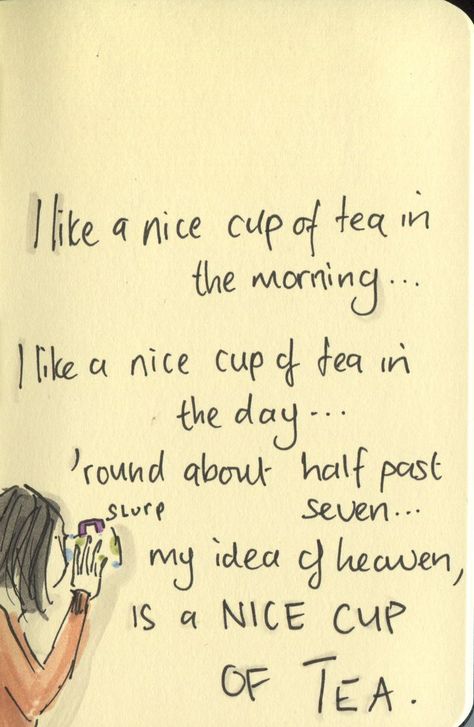 I like a nice cup of tea in
the morning...
I like a nice cup of tea in
the day...
'round about half past
slurp
seven...
my idea of heaven,
is a NICE CUP
OF TEA.